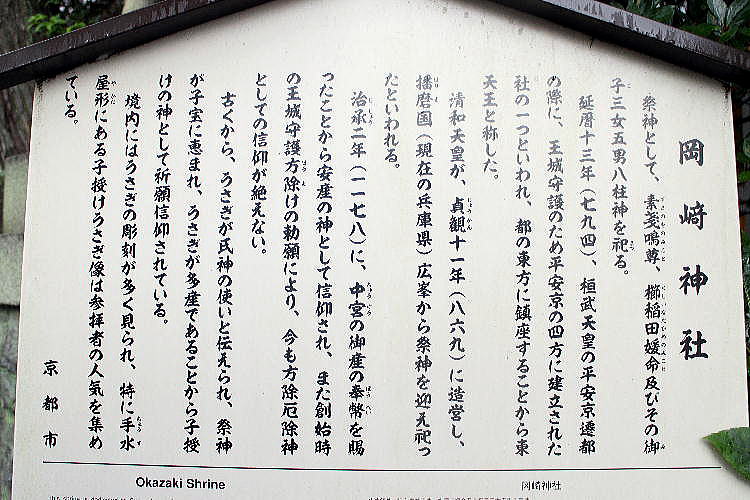 岡﨑神社
祭神として、素戔嗚尊、櫛稲田媛命及びその御
子三女五男八柱神を祀る。
延暦十三年（七九四）、桓武天皇の平安京遷都
の際に、王城守護のため平安京の四方に建立された
社の一つといわれ、都の東方に鎮座することから東
天王と称した。
清和天皇が、貞観十一年（八六九）に造営し、
播磨国（現在の兵庫県）広峯から祭神を迎え祀っ
たといわれる。
治承二年（一一七八）に、中宮の御産の奉幣を賜
ったことから安産の神として信仰され、また創始時
の王城守護方除けの勅願により、今も方除厄除神
としての信仰が絶えない。
古くから、うさぎが氏神の使いと伝えられ、祭神
が子宝に恵まれ、うさぎが多産であることから子授
けの神として祈願信仰されている。
境内にはうさぎの彫刻が多く見られ、特に手水
屋形にある子授けうさぎ像は参拝者の人気を集め
ている。
京都市
Okazaki Shrine
冈崎神社